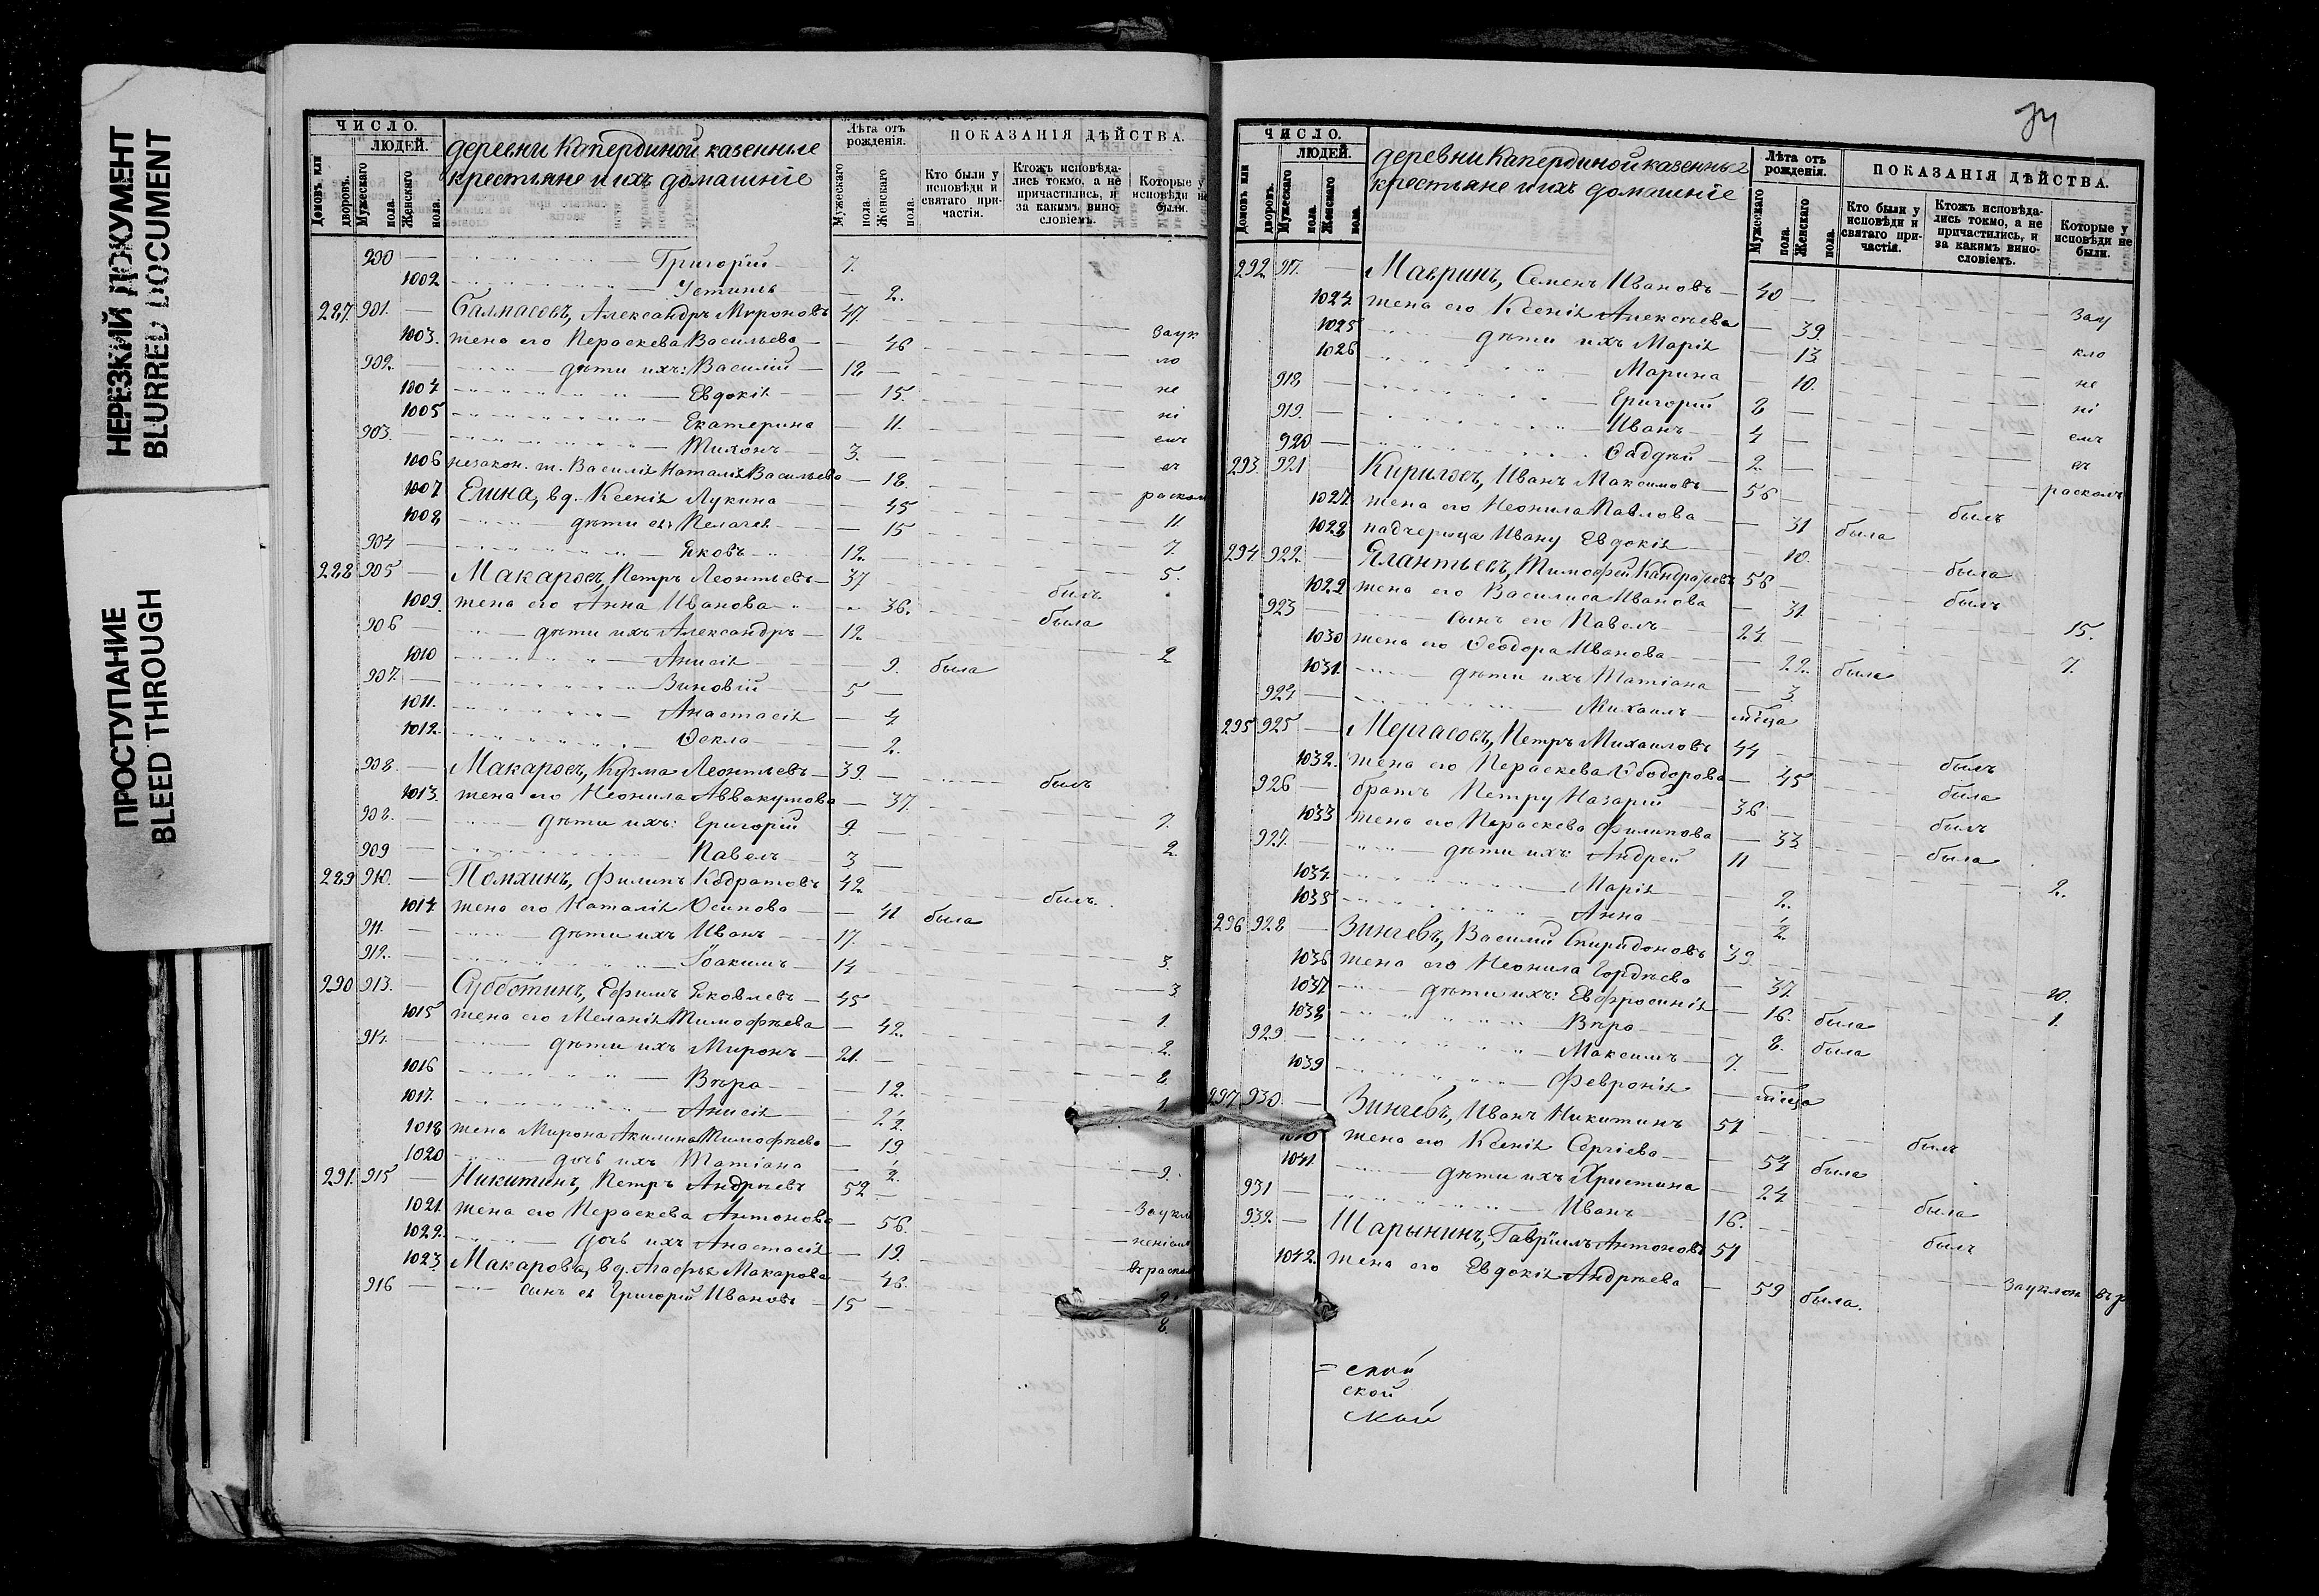 НЕРЕЗКИЙ ДОКУМЕНТ
BLURRED DOCUMENT
ПРОСТУПАНИЕ
BLEED THROUGH
ЧИСЛО.
ЛЮДЕЙ.
Домовъ или дворовъ.
Мужескаго пола.
Женскаго пола.
деревни Капердиной казенные
крестьяне и ихъ домашніе
Лѣта отъ рожденія.
Мужескаго пола.
Женскаго пола.
ПОКАЗАНІЯ ДѢЙСТВА.
Кто были у исповѣди и святаго причастія.
Ктожъ исповѣдались токмо, а не причастились, и за какимъ винословіемъ.
Которые у исповѣди не были.
900 Григорій 7.
1002 Устинья 2.
287. 901. Балмасовъ, Александръ Мироновъ 47
1003. жена его Пераскева Васильева 46 заук
902. дѣти ихъ: Василій 18 ло
1004 Евдокія 15. не
1005 Екатерина 11. ні
903. Тихонъ 3. емъ
1006 незакон. т. Василія Наталія Васильева 18. въ
1007 Елина, вд. Ксенія Лукина 45 раскол
1008 дѣти ея: Пелагея 15 11
904 Яковъ 12. 7.
288 905 Макаровъ, Петръ Леонтьевъ 37 5.
1009. жена его Анна Иванова 36. былъ
906 дѣти ихъ Александръ 12 была
1010 Анисія 9. была 2
907. Зиновій 5
1011. Анастасія 4
1012. Ѳекла 2.
908. Макаровъ, Кузма Леонтьевъ 39.
1013. жена его Неонила Аввакумова 37. былъ
908. дѣти ихъ: Григорій 9. 7.
909 Павелъ 3 2
289 910. Помхинъ, Филипъ Кодратовъ 42
1014. жена его Наталія Осипова 41 была былъ.
911. дѣти ихъ Иванъ 17.
912. Іоакимъ 14 3.
290 913. Субботинъ, Ефимъ Яковлевъ 45 3
1015 жена его Меланія Тимофѣева 42. 1.
914. дѣти ихъ Миронъ 21. 2.
1016 Вѣра 12. 8
1017. Анисія 1/2 1.
1018 жена Мирона Акилина Тимофѣева 19
1020 дочь ихъ Татіана 1/2.
291. 915 Никитинъ, Петръ Андрѣевъ 52 9.
1021. жена его Пераскева Антонова 56. заукл
1022. дочь ихъ Анастасія 19 неніемъ
1023 Макарова, вд. Агафья Макарова 46. въ раскол
916 сынъ ея Григорій Ивановъ 15
8.
34
ЧИСЛО.
ЛЮДЕЙ.
Домовъ или дворовъ.
Мужескаго пола.
Женскаго пола.
деревни Капердиной казенные
крестьяне и ихъ домашніе
Лѣта отъ рожденія.
Мужескаго пола.
Женскаго пола.
ПОКАЗАНІЯ ДѢЙСТВА.
Кто были у исповѣди и святаго причастія.
Ктожъ исповѣдались токмо, а не причастились, и за какимъ винословіемъ.
Которые у исповѣди не были.
292 917. Мавринъ, Семенъ Ивановъ 40
1024. жена его Ксенія Алексѣева 39. зау
1025 дѣти ихъ Марія 13 кло
1026 Марина 10. не
918 Григорій 8 ні
919. Иванъ 4 емъ
920 Ѳаддѣй 2. въ
293. 921 Кириловъ, Иванъ Максимовъ 56 расколъ
1027. жена его Неонила Павлова 31 была былъ
1028 падчерица Ивану Евдокія 10.
294. 922. Ялантьевъ, Тимофѣй Кандратьевъ 56 была
1029 жена его Василиса Иванова 31 былъ
923 сынъ его Павелъ 24. 15.
1030 жена его Ѳеодора Иванова 22. была 7.
1031. дѣти ихъ Татіана 3
924 Михаилъ мѣсяца
295 925 Мергасовъ, Петръ Михаиловъ 44
1032. жена его Пераскева Ѳеодорова 45 былъ
926 братъ Петру Назарій 36 была
1033 жена его Пераскева Филипова 33 былъ
927. дѣти ихъ: Андрей 11 была
1034. Марія 2. 2.
1035 Анна 1/2.
296 928 Зинчевъ, Василій Спиридоновъ 39.
1036 жена его Неонила Гордѣева 37. 20.
1037 дѣти ихъ: Евфросинія 16. была 1.
1038 Вѣра 8. была
929 Максимъ 7.
1039 Февронія мѣсяца
297 930. Зинчевъ, Иванъ Никитинъ 51
1040 жена его Ксенія Сергіева 54 была былъ
1041. дѣти ихъ Христина 24
931 Иванъ 16. была
932. Шарынинъ, Гавріилъ Антоновъ 51 былъ
1042. жена его Евдокія Андрѣева 59 была. за уклон въ р
= ской
ской
ской